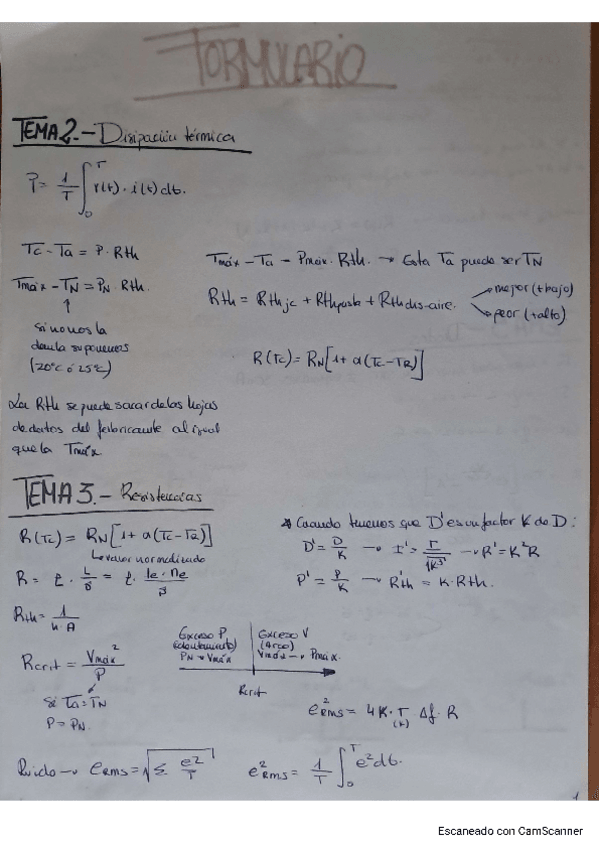 FORMULARIO
TEMA 2.- Disipación térmica
P = 1/T ∫₀ᵀ v(t) · i(t) dt.
Tc - Ta = P · Rth
Tmáx - TN = PN · Rth.
↑
Si no nos la
dan la suponemos
(20ºC ó 25ºC)
Tmáx - Ta - Pmáx · Rth. → Esta Ta puede ser TN
Rth = Rthjc + Rthpasta + Rthdis-aire.
→ mejor (+ bajo)
→ peor (+ alto)
R(Tc) = RN [1 + α(Tc - TR)]
La Rth se puede sacar de las hojas
de datos del fabricante al igual
que la Tmáx
TEMA 3.- Resistencias
R(Tc) = RN [1 + α(Tc - TR)]
↳ valor normalizado
Rth = 1/(h · A)
Rcrit = Vmáx²/P
Si Ta = TN
P = PN.
* Cuando tenemos que D' es un factor K de D:
D' = D/K → I' = I/√K³ → R' = K²R
P' = P/K → R'th = K · Rth.
Exceso P
PN → Vmáx
Exceso V
(Arco)
Vmáx → Pmáx.
Rcrit
e²RMS = 4K · T Δf · R
(K)
Ruido → eRMS = √(Σ e²/T)
e²RMS = 1/T ∫₀ᵀ e² dt.
1
Escaneado con CamScanner